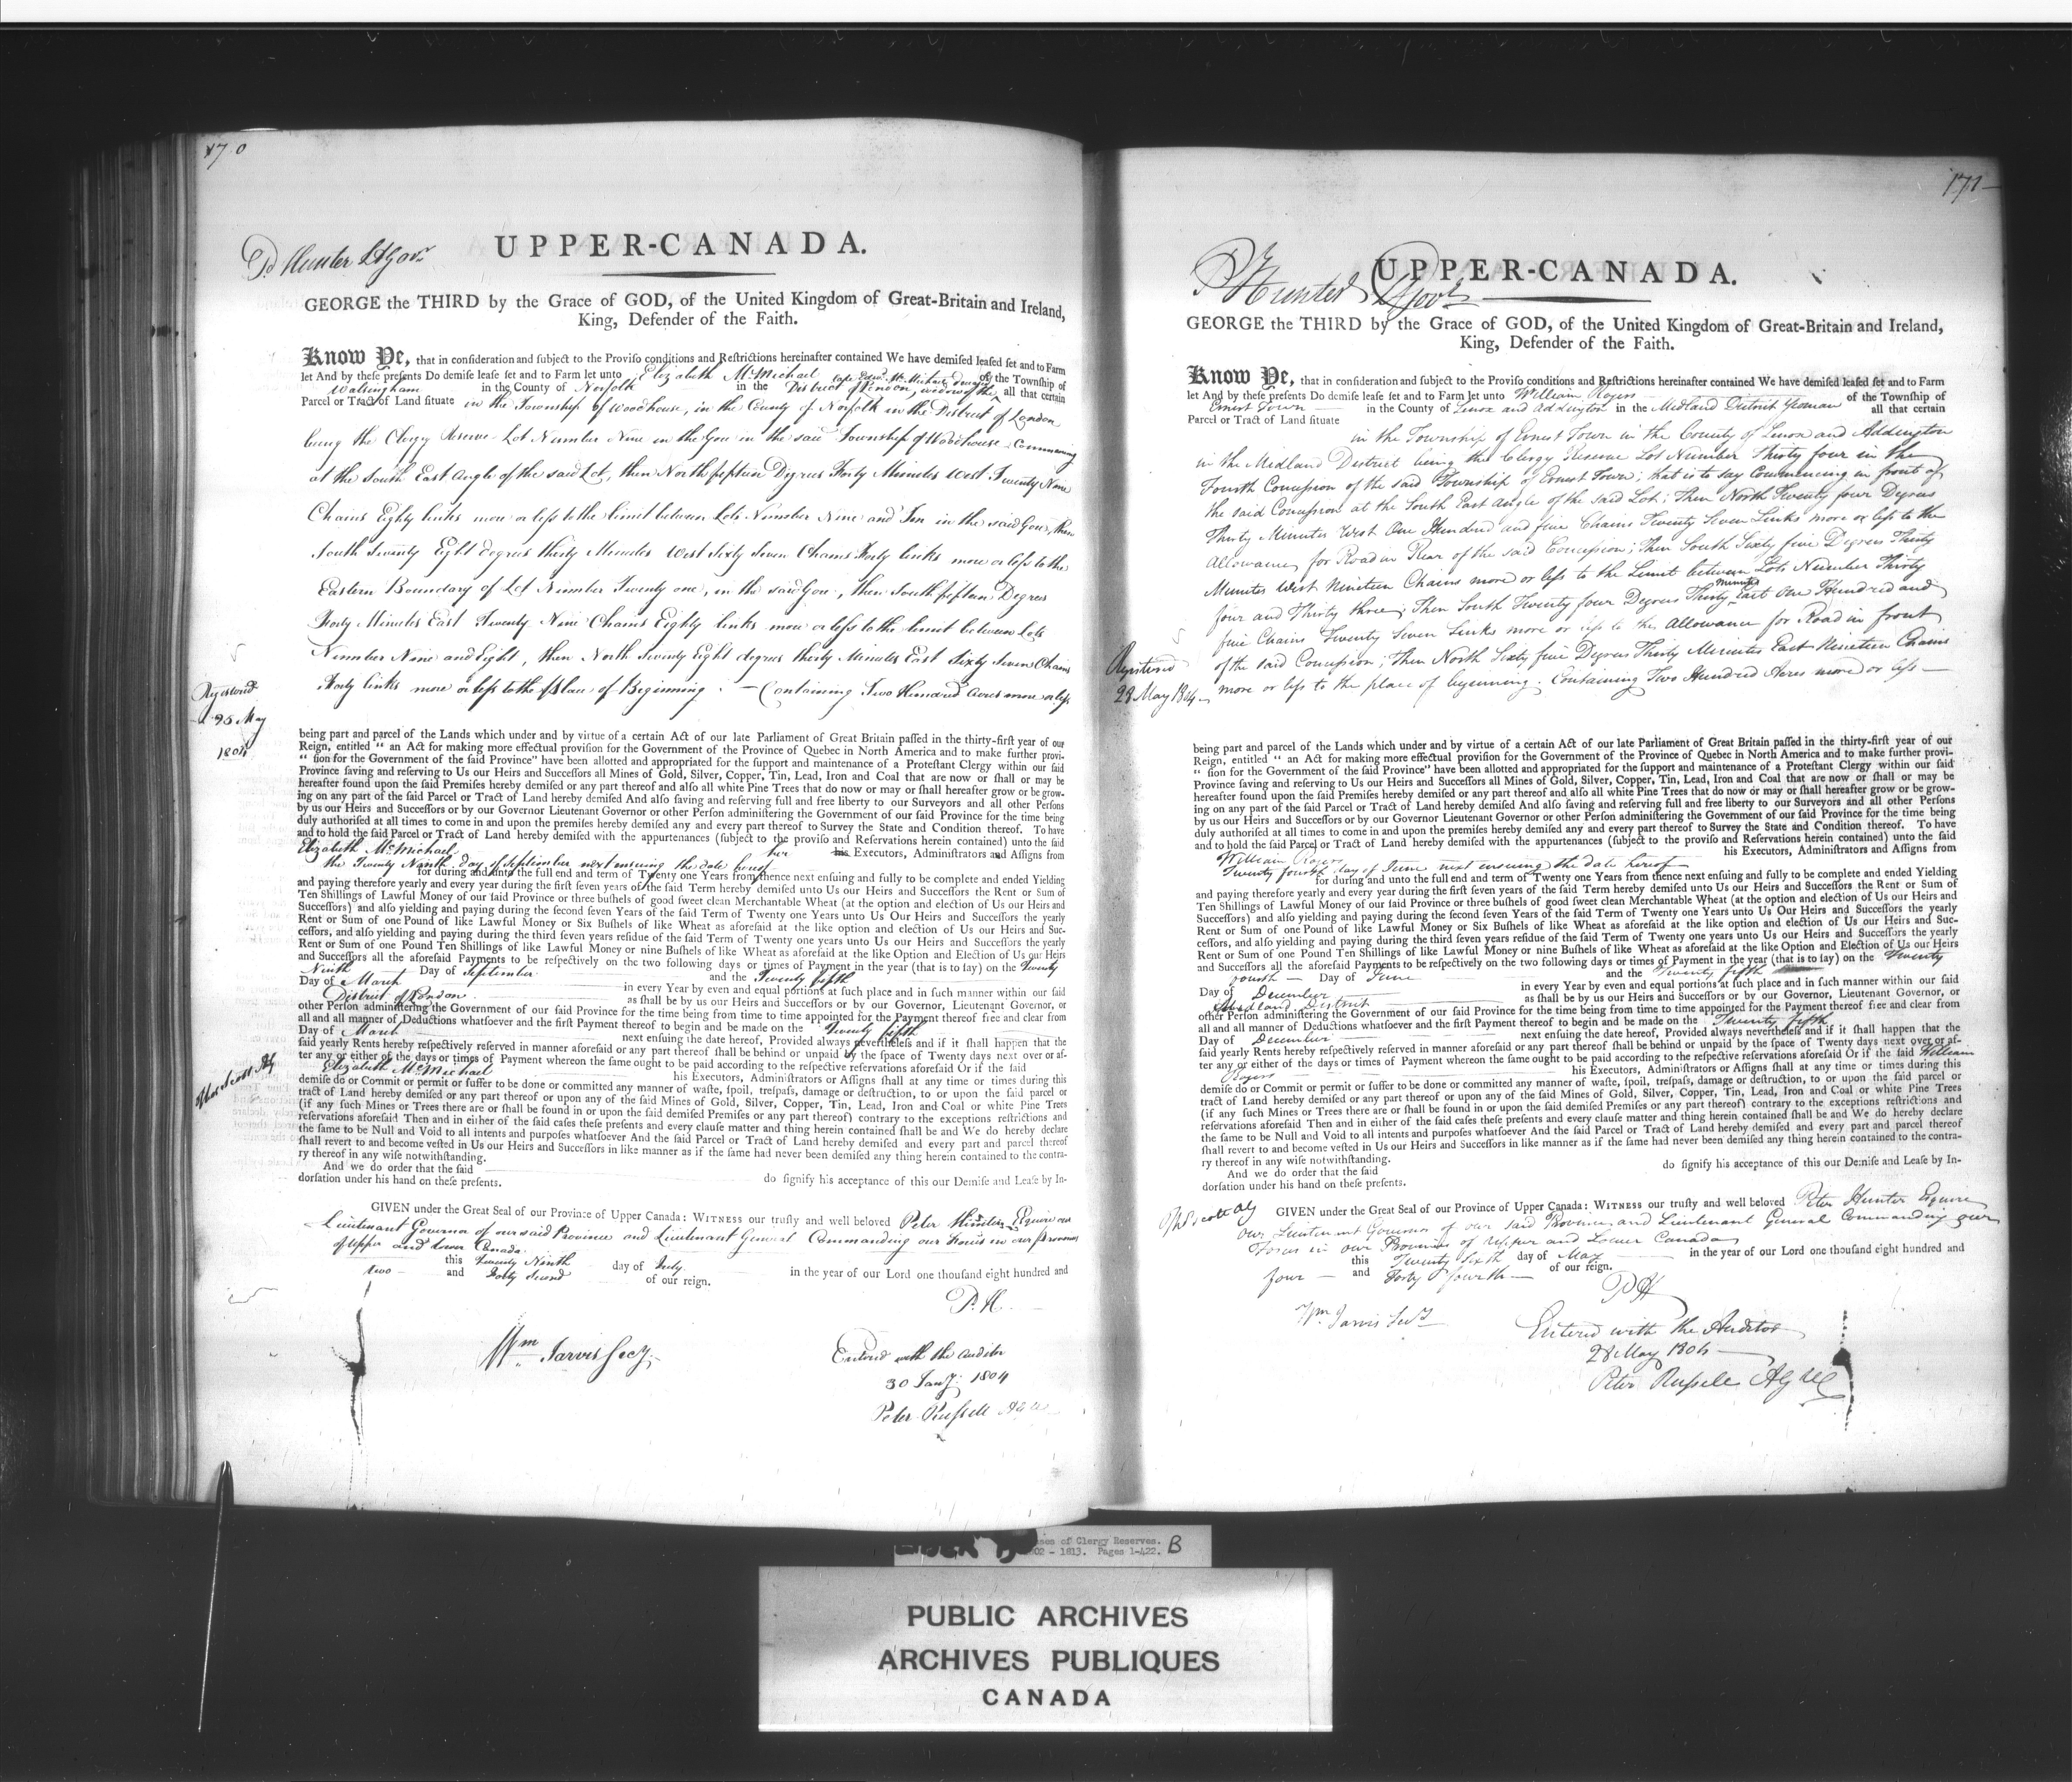 170
UPPER-CANADA.
P. Hunter Lt Govr
GEORGE the THIRD by the Grace of GOD, of the United Kingdom of Great-Britain and Ireland,
King, Defender of the Faith.
Know Ye, that in consideration and subject to the Proviso conditions and Restrictions hereinafter contained We have demised leased set and to Farm
let And by these presents Do demise lease set and to Farm let unto Elizabeth McMichael of the Township of
Walsingham in the County of Norfolk in the District of London, widow of the late Edwd McMichael deceased all that certain
Parcel or Tract of Land situate in the Township of Woodhouse, in the County of Norfolk in the District of London
being the Clergy Reserve Lot Number Nine in the Gore in the said Township of Woodhouse Commencing
at the South East Angle of the said Lot, then North fifteen Degrees Forty Minutes West Twenty Nine
Chains Eighty links more or less to the limit between Lots Number Nine and Ten in the said Gore, then
South Twenty Eight degrees thirty Minutes West Sixty Seven Chains Forty links more or less to the
Eastern Boundary of Lot Number Twenty one, in the said Gore, then South fifteen Degrees
Forty Minutes East Twenty Nine Chains Eighty links more or less to the limit between Lots
Number Nine and Eight, then North Twenty Eight degrees thirty Minutes East Sixty Seven Chains
Forty links more or less to the Place of Beginning. — Containing Two Hundred Acres more or less
Registered
25 May
1804
being part and parcel of the Lands which under and by virtue of a certain Act of our late Parliament of Great Britain passed in the thirty-first year of our
Reign, entitled " an Act for making more effectual provision for the Government of the Province of Quebec in North America and to make further provi-
" sion for the Government of the said Province" have been allotted and appropriated for the support and maintenance of a Protestant Clergy within our said
Province saving and reserving to Us our Heirs and Successors all Mines of Gold, Silver, Copper, Tin, Lead, Iron and Coal that are now or shall or may be
hereafter found upon the said Premises hereby demised or any part thereof and also all white Pine Trees that do now or may or shall hereafter grow or be grow-
ing on any part of the said Parcel or Tract of Land hereby demised And also saving and reserving full and free liberty to our Surveyors and all other Persons
by us our Heirs and Successors or by our Governor Lieutenant Governor or other Person administering the Government of our said Province for the time being
duly authorised at all times to come in and upon the premises hereby demised any and every part thereof to Survey the State and Condition thereof. To have
and to hold the said Parcel or Tract of Land hereby demised with the appurtenances (subject to the proviso and Reservations herein contained) unto the said
Elizabeth McMichael her his Executors, Administrators and Assigns from
the Twenty Ninth day of September next ensuing the date hereof
for during and unto the full end and term of Twenty one Years from thence next ensuing and fully to be complete and ended Yielding
and paying therefore yearly and every year during the first seven years of the said Term hereby demised unto Us our Heirs and Successors the Rent or Sum of
Ten Shillings of Lawful Money of our said Province or three bushels of good sweet clean Merchantable Wheat (at the option and election of Us our Heirs and
Successors) and also yielding and paying during the second seven Years of the said Term of Twenty one Years unto Us Our Heirs and Successors the yearly
Rent or Sum of one Pound of like Lawful Money or Six Bushels of like Wheat as aforesaid at the like option and election of Us our Heirs and Suc-
cessors, and also yielding and paying during the third seven years residue of the said Term of Twenty one years unto Us our Heirs and Successors the yearly
Rent or Sum of one Pound Ten Shillings of like Lawful Money or nine Bushels of like Wheat as aforesaid at the like Option and Election of Us our Heirs
and Successors all the aforesaid Payments to be respectively on the two following days or times of Payment in the year (that is to say) on the Twenty
Ninth Day of September and the Twenty fifth
Day of March in every Year by even and equal portions at such place and in such manner within our said
District of London. as shall be by us our Heirs and Successors or by our Governor, Lieutenant Governor, or
other Person administering the Government of our said Province for the time being from time to time appointed for the Payment thereof free and clear from
all and all manner of Deductions whatsoever and the first Payment thereof to begin and be made on the Twenty fifth
Day of March next ensuing the date hereof, Provided always nevertheless and if it shall happen that the
said yearly Rents hereby respectively reserved in manner aforesaid or any part thereof shall be behind or unpaid by the space of Twenty days next over or af-
ter any or either of the days or times of Payment whereon the same ought to be paid according to the respective reservations aforesaid Or if the said
Elizabeth McMichael his Executors, Administrators or Assigns shall at any time or times during this
Thos Scott Aty
demise do or Commit or permit or suffer to be done or committed any manner of waste, spoil, trespass, damage or destruction, to or upon the said parcel or
tract of Land hereby demised or any part thereof or upon any of the said Mines of Gold, Silver, Copper, Tin, Lead, Iron and Coal or white Pine Trees
(if any such Mines or Trees there are or shall be found in or upon the said demised Premises or any part thereof) contrary to the exceptions restrictions and
reservations aforesaid Then and in either of the said cases these presents and every clause matter and thing herein contained shall be and We do hereby declare
the same to be Null and Void to all intents and purposes whatsoever And the said Parcel or Tract of Land hereby demised and every part and parcel thereof
shall revert to and become vested in Us our Heirs and Successors in like manner as if the same had never been demised any thing herein contained to the contra-
ry thereof in any wise notwithstanding.
And we do order that the said do signify his acceptance of this our Demise and Lease by In-
dorsation under his hand on these presents.
GIVEN under the Great Seal of our Province of Upper Canada: WITNESS our trusty and well beloved Peter Hunter Esquire our
Lieutenant Governor of our said Province and Lieutenant General Commanding our Forces in our Provinces
of Upper and Lower Canada.
this Twenty Ninth day of July in the year of our Lord one thousand eight hundred and
two and Forty Second of our reign.
P. H.
Wm Jarvis Secy.
Entered with the Auditor
30 Jany. 1804
Peter Russell
171
UPPER-CANADA.
P Hunter Lt Govr
GEORGE the THIRD by the Grace of GOD, of the United Kingdom of Great-Britain and Ireland,
King, Defender of the Faith.
Know Ye, that in consideration and subject to the Proviso conditions and Restrictions hereinafter contained We have demised leased set and to Farm
let And by these presents Do demise lease set and to Farm let unto William Rogers of the Township of
Ernest Town in the County of Lenox and Addington in the Midland District Yeoman all that certain
Parcel or Tract of Land situate
in the Township of Ernest Town in the County of Lenox and Addington
in the Midland District being the Clergy Reserve Lot Number Thirty four in the
Fourth Concession of the said Township of Ernest Town; that is to say Commencing in front of
the said Concession at the South East angle of the said Lot; Then North Twenty four Degrees
Thirty Minutes West One Hundred and five Chains Twenty Seven Links more or less to the
Allowance for Road in Rear of the said Concession; Then South Sixty five Degrees Thirty
Minutes West Nineteen Chains more or less to the Limit between Lots Number Thirty
four and Thirty three; Then South Twenty four Degrees Thirty Minutes East One Hundred and
five Chains Twenty Seven Links more or less to the Allowance for Road in front
of the said Concession; Then North Sixty five Degrees Thirty Minutes East Nineteen Chains
more or less to the place of beginning. Containing Two Hundred Acres more or less
Registered
28 May 1804
being part and parcel of the Lands which under and by virtue of a certain Act of our late Parliament of Great Britain passed in the thirty-first year of our
Reign, entitled " an Act for making more effectual provision for the Government of the Province of Quebec in North America and to make further provi-
" sion for the Government of the said Province" have been allotted and appropriated for the support and maintenance of a Protestant Clergy within our said
Province saving and reserving to Us our Heirs and Successors all Mines of Gold, Silver, Copper, Tin, Lead, Iron and Coal that are now or shall or may be
hereafter found upon the said Premises hereby demised or any part thereof and also all white Pine Trees that do now or may or shall hereafter grow or be grow-
ing on any part of the said Parcel or Tract of Land hereby demised And also saving and reserving full and free liberty to our Surveyors and all other Persons
by us our Heirs and Successors or by our Governor Lieutenant Governor or other Person administering the Government of our said Province for the time being
duly authorised at all times to come in and upon the premises hereby demised any and every part thereof to Survey the State and Condition thereof. To have
and to hold the said Parcel or Tract of Land hereby demised with the appurtenances (subject to the proviso and Reservations herein contained) unto the said
William Rogers his Executors, Administrators and Assigns from
Twenty fourth day of June next ensuing the date hereof
for during and unto the full end and term of Twenty one Years from thence next ensuing and fully to be complete and ended Yielding
and paying therefore yearly and every year during the first seven years of the said Term hereby demised unto Us our Heirs and Successors the Rent or Sum of
Ten Shillings of Lawful Money of our said Province or three bushels of good sweet clean Merchantable Wheat (at the option and election of Us our Heirs and
Successors) and also yielding and paying during the second seven Years of the said Term of Twenty one Years unto Us Our Heirs and Successors the yearly
Rent or Sum of one Pound of like Lawful Money or Six Bushels of like Wheat as aforesaid at the like option and election of Us our Heirs and Suc-
cessors, and also yielding and paying during the third seven years residue of the said Term of Twenty one years unto Us our Heirs and Successors the yearly
Rent or Sum of one Pound Ten Shillings of like Lawful Money or nine Bushels of like Wheat as aforesaid at the like Option and Election of Us our Heirs
and Successors all the aforesaid Payments to be respectively on the two following days or times of Payment in the year (that is to say) on the Twenty
fourth Day of June and the Twenty fifth
Day of December in every Year by even and equal portions at such place and in such manner within our said
Midland District as shall be by us our Heirs and Successors or by our Governor, Lieutenant Governor, or
other Person administering the Government of our said Province for the time being from time to time appointed for the Payment thereof free and clear from
all and all manner of Deductions whatsoever and the first Payment thereof to begin and be made on the Twenty fifth
Day of December next ensuing the date hereof, Provided always nevertheless and if it shall happen that the
said yearly Rents hereby respectively reserved in manner aforesaid or any part thereof shall be behind or unpaid by the space of Twenty days next over or af-
ter any or either of the days or times of Payment whereon the same ought to be paid according to the respective reservations aforesaid Or if the said William
Rogers his Executors, Administrators or Assigns shall at any time or times during this
demise do or Commit or permit or suffer to be done or committed any manner of waste, spoil, trespass, damage or destruction, to or upon the said parcel or
tract of Land hereby demised or any part thereof or upon any of the said Mines of Gold, Silver, Copper, Tin, Lead, Iron and Coal or white Pine Trees
(if any such Mines or Trees there are or shall be found in or upon the said demised Premises or any part thereof) contrary to the exceptions restrictions and
reservations aforesaid Then and in either of the said cases these presents and every clause matter and thing herein contained shall be and We do hereby declare
the same to be Null and Void to all intents and purposes whatsoever And the said Parcel or Tract of Land hereby demised and every part and parcel thereof
shall revert to and become vested in Us our Heirs and Successors in like manner as if the same had never been demised any thing herein contained to the contra-
ry thereof in any wise notwithstanding.
And we do order that the said do signify his acceptance of this our Demise and Lease by In-
dorsation under his hand on these presents.
Thos Scott Aty
GIVEN under the Great Seal of our Province of Upper Canada: WITNESS our trusty and well beloved Peter Hunter Esquire
our Lieutenant Governor of our said Province and Lieutenant General Commanding our
Forces in our Provinces of Upper and Lower Canada
this Twenty Sixth day of May in the year of our Lord one thousand eight hundred and
four and Forty fourth of our reign.
P H
Wm Jarvis Secy
Entered with the Auditor
28 May 1804
Peter Russell
of Clergy Reserves.
1813. Pages 1-422. B
PUBLIC ARCHIVES
ARCHIVES PUBLIQUES
CANADA